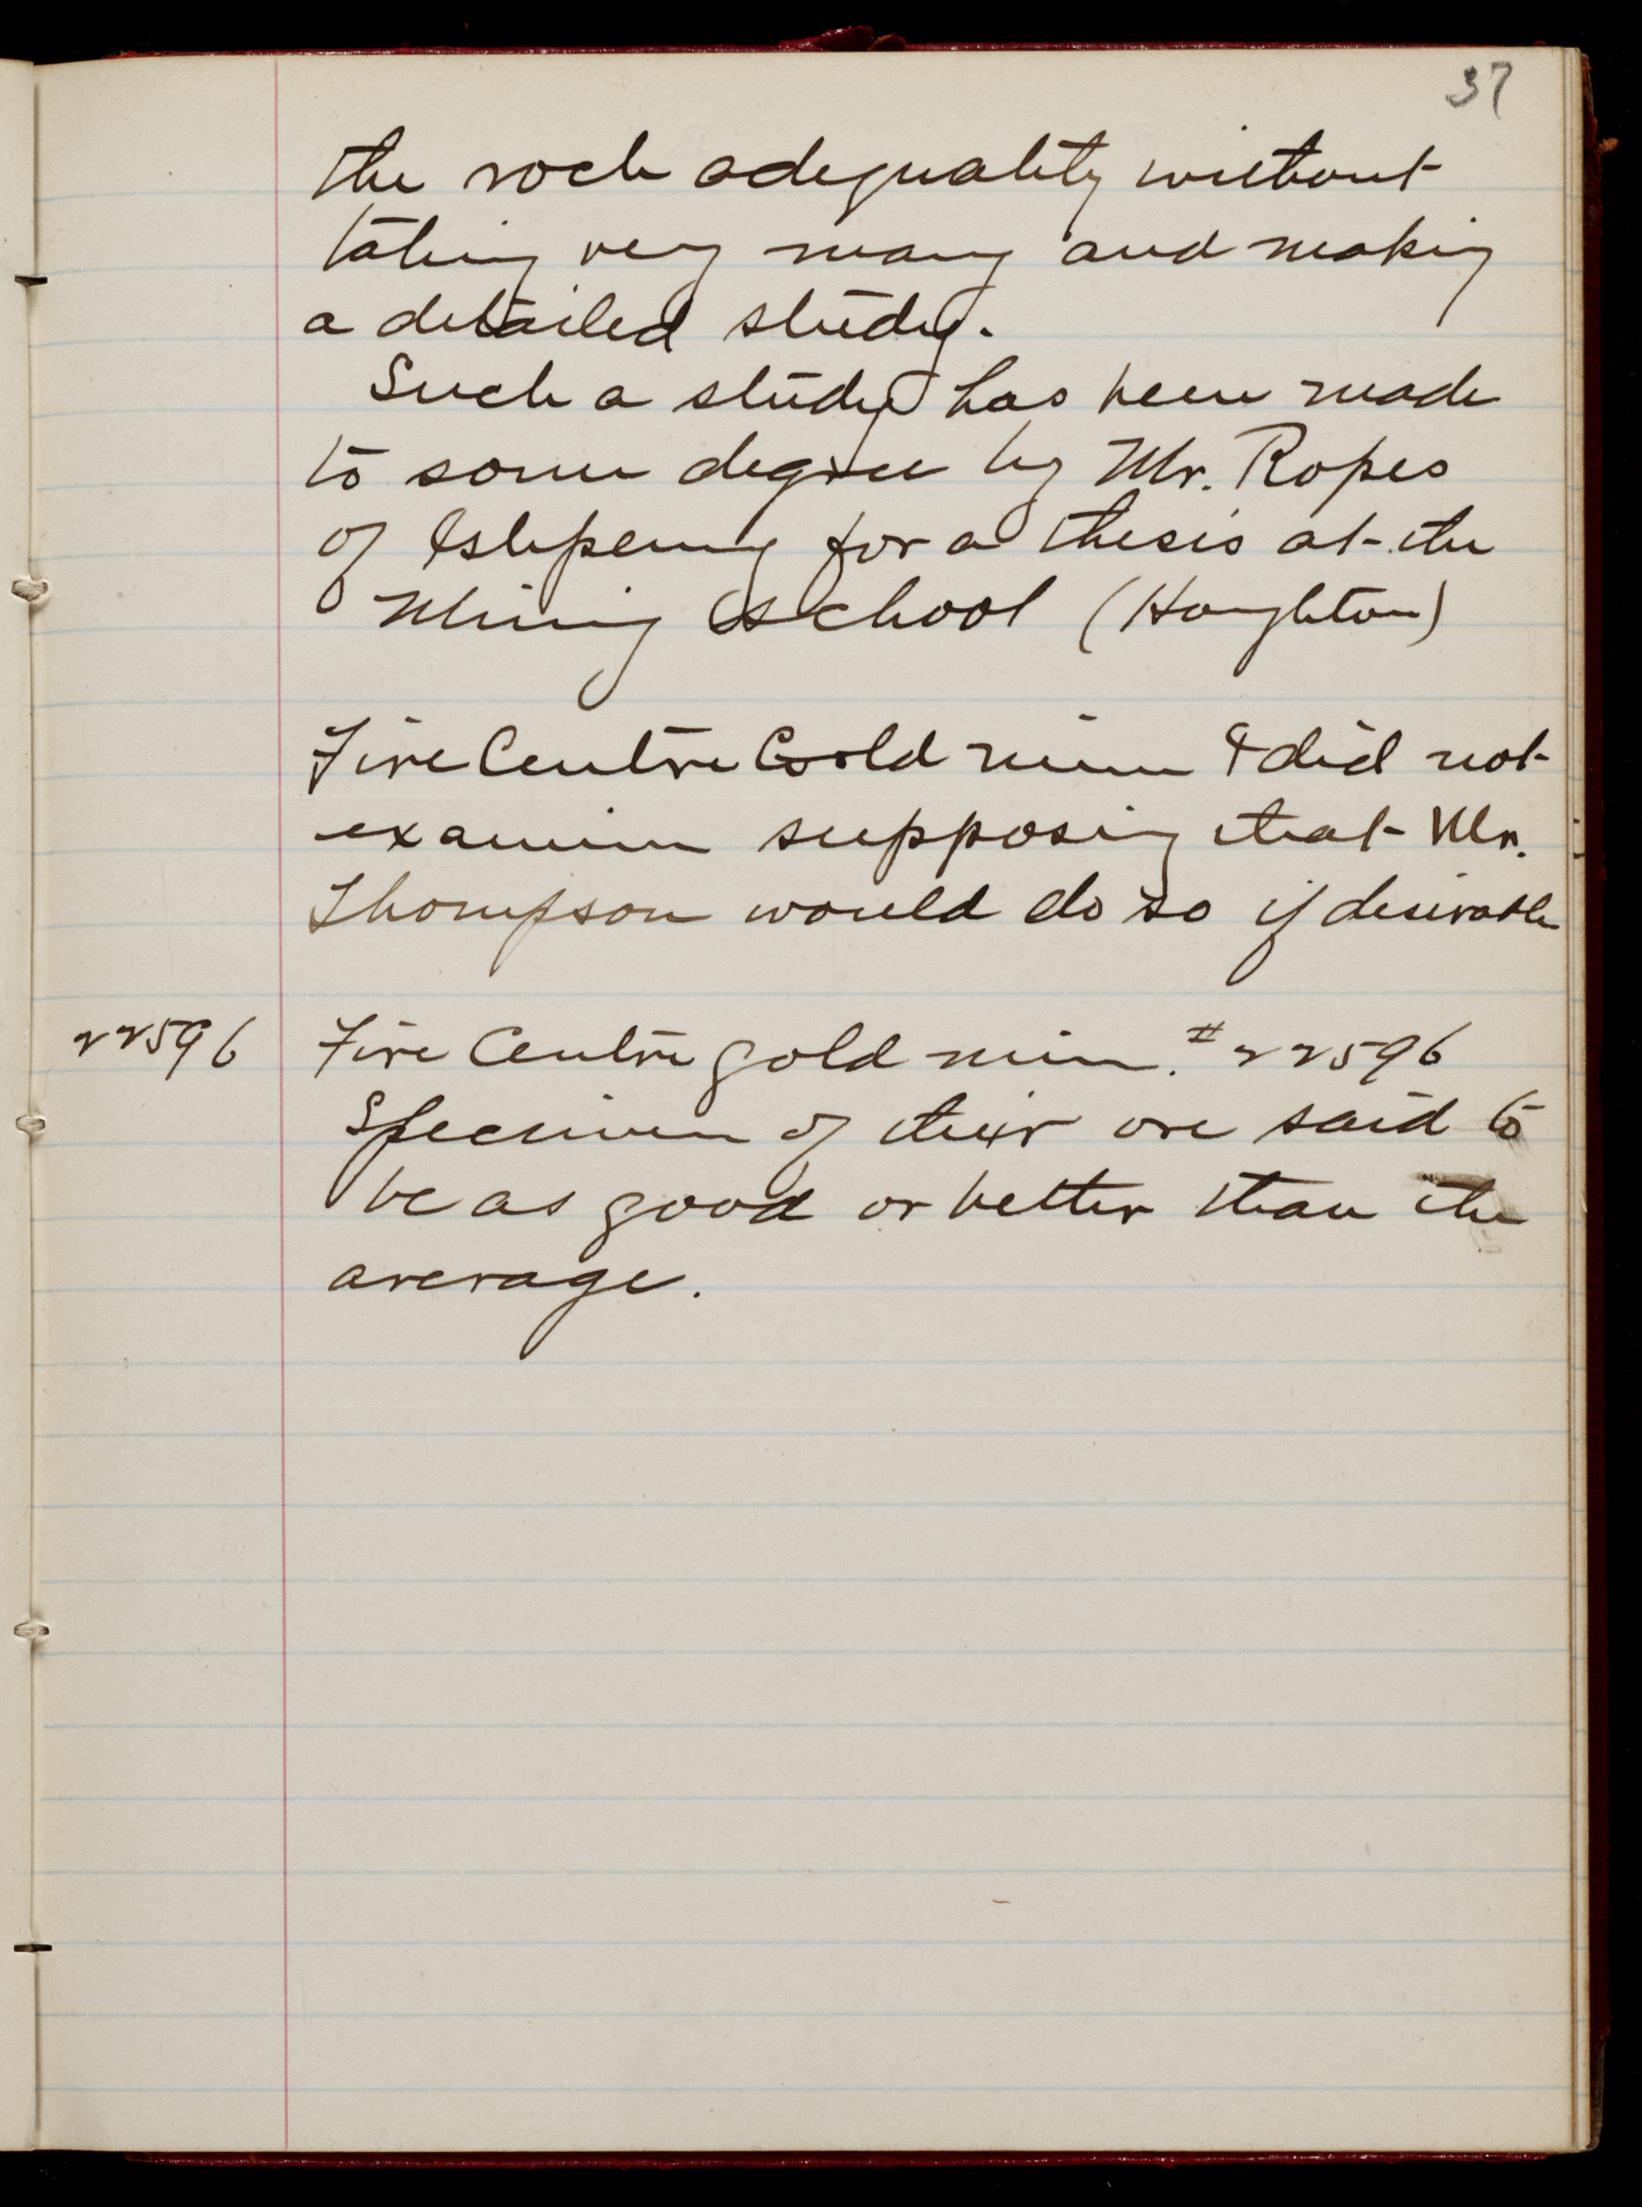 37
the rock adequality without
taking very many and making
a detailed study.
Such a study has been made
to some degree by Mr. Ropes
of Ishpeming for a thesis at the
Mining School (Houghton)
Fire Centre Gold mine I did not
examine supposing that Mr.
Thompson would do so if desirable
22596
Fire Centre gold mine. # 22596
Specimen of their ore said to
be as good or better than the
average.